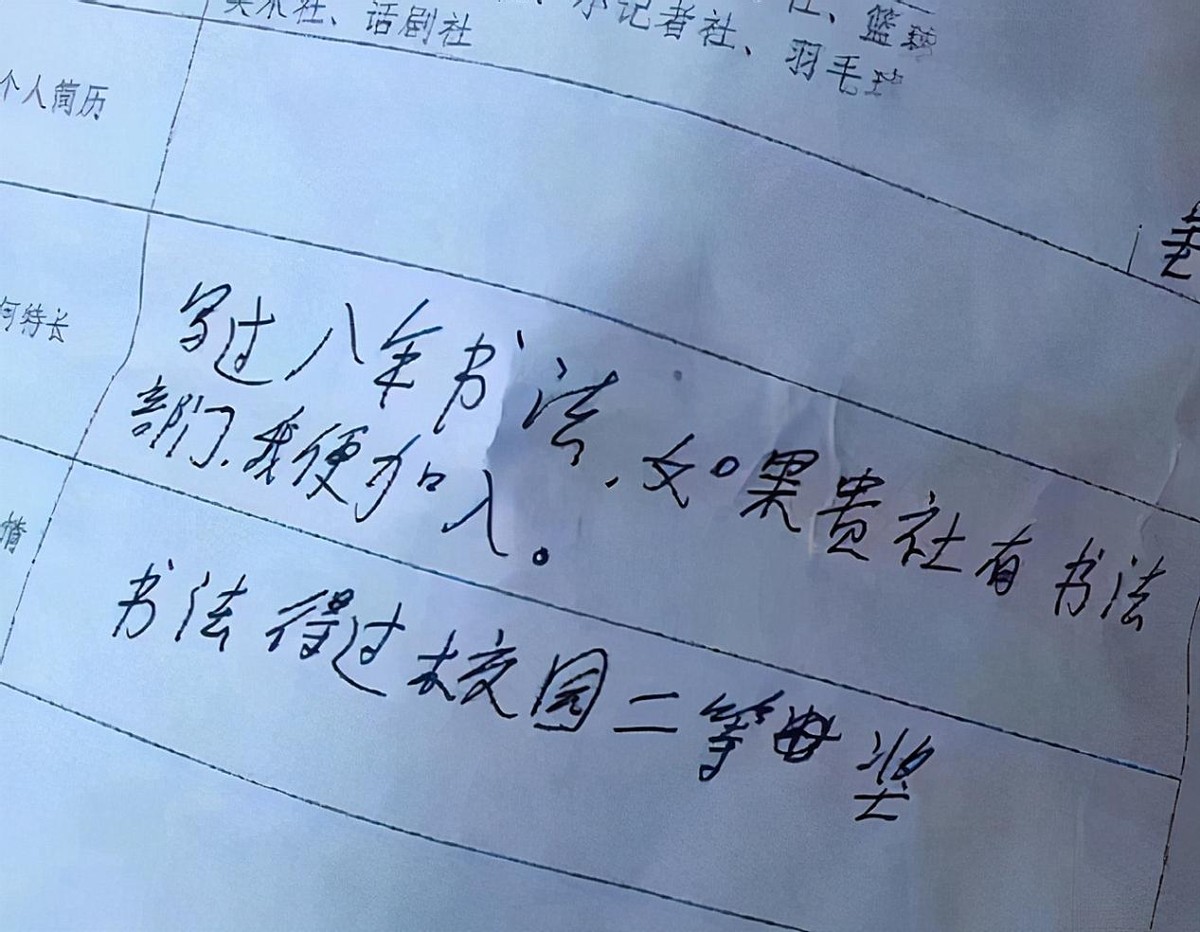 术社、话剧社
小记者社、
社、篮球
羽毛球
个人简历
何特长
写过八年书法,如果贵社有书法
部门,我便加入。
情
书法得过校园二等奖